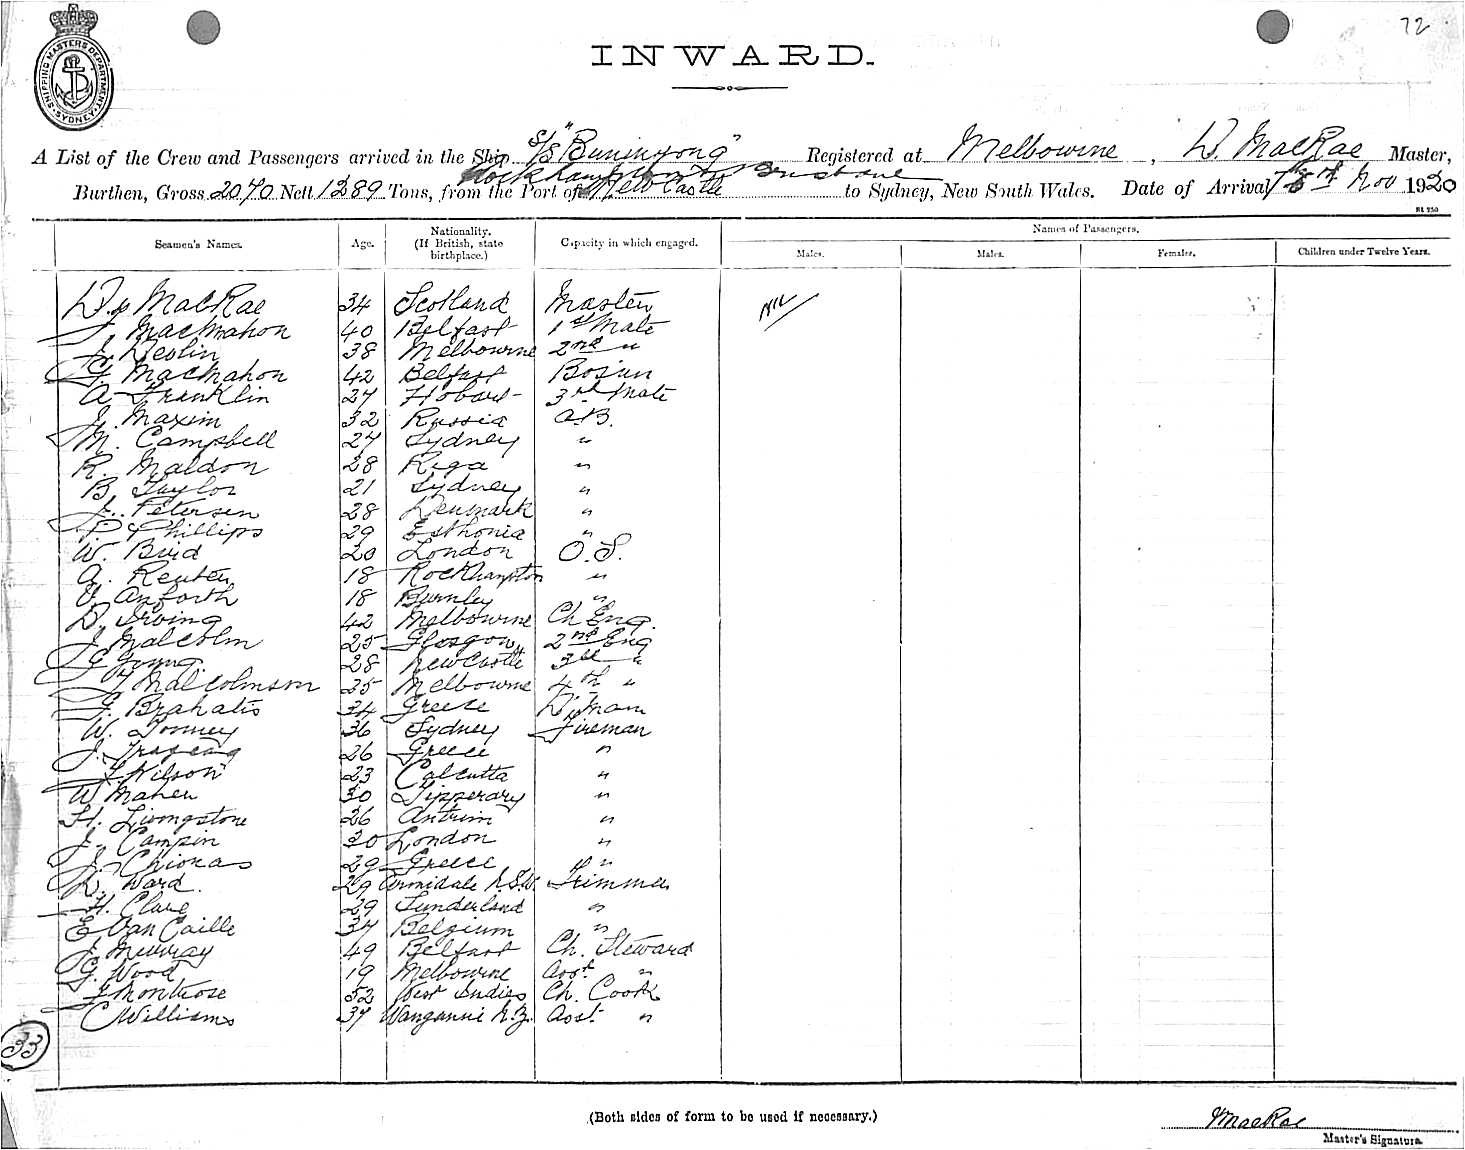 72
SHIPPING MASTERS DEPARTMENT
SYDNEY
INWARD.
A List of the Crew and Passengers arrived in the Ship S/S "Buninyong" Registered at Melbourne, D. MacRae Master,
Rockhampton Brisbane
Burthen, Gross 2070 Nett 1289 Tons, from the Port of Newcastle to Sydney, New South Wales. Date of Arrival Nov 1920
Names of Passengers.
Seamen's Names. Age. Nationality. (If British, state birthplace.) Capacity in which engaged. Males. Males. Females. Children under Twelve Years.
D. MacRae 34 Scotland Master Nil
J. MacMahon 40 Belfast 1st Mate
J. Deslin 38 Melbourne 2nd "
G. MacMahon 42 Belfast Bosun
A. Franklin 27 Hobart 3rd Mate
J. Maxim 32 Russia A.B.
M. Campbell 27 Sydney "
R. Maldon 28 Riga "
B. Taylor 21 Sydney "
J. Petersen 28 Denmark "
P. Phillips 29 Esthonia "
W. Bird 20 London O.S.
A. Reuter 18 Rockhampton "
Anforth 18 Burnley "
D. Irving 42 Melbourne Ch Eng.
J. Malcolm 25 Glasgow 2nd Eng
G. Young 28 Newcastle 3rd "
J. Malcolmson 25 Melbourne 4th "
G. Brahatis 34 Greece D'man
W. Tonney 36 Sydney Fireman
J. 26 Greece "
Wilson 23 Calcutta "
W Maher 30 Tipperary "
H. Livingstone 26 Antrim "
J. Campin 30 London "
J. Chionas 29 Greece "
R. Ward. 29 Armidale N.S.W. Trimmer
H. Clare 29 Sunderland "
E Van Caille 34 Belgium "
J Murray 49 Belfast Ch. Steward
G. Wood 19 Melbourne Asst "
J Montrose 52 West Indies Ch. Cook
C Williams 37 Wanganui N.Z. Asst. "
33
(Both sides of form to be used if necessary.)
MacRae
Master's Signature.